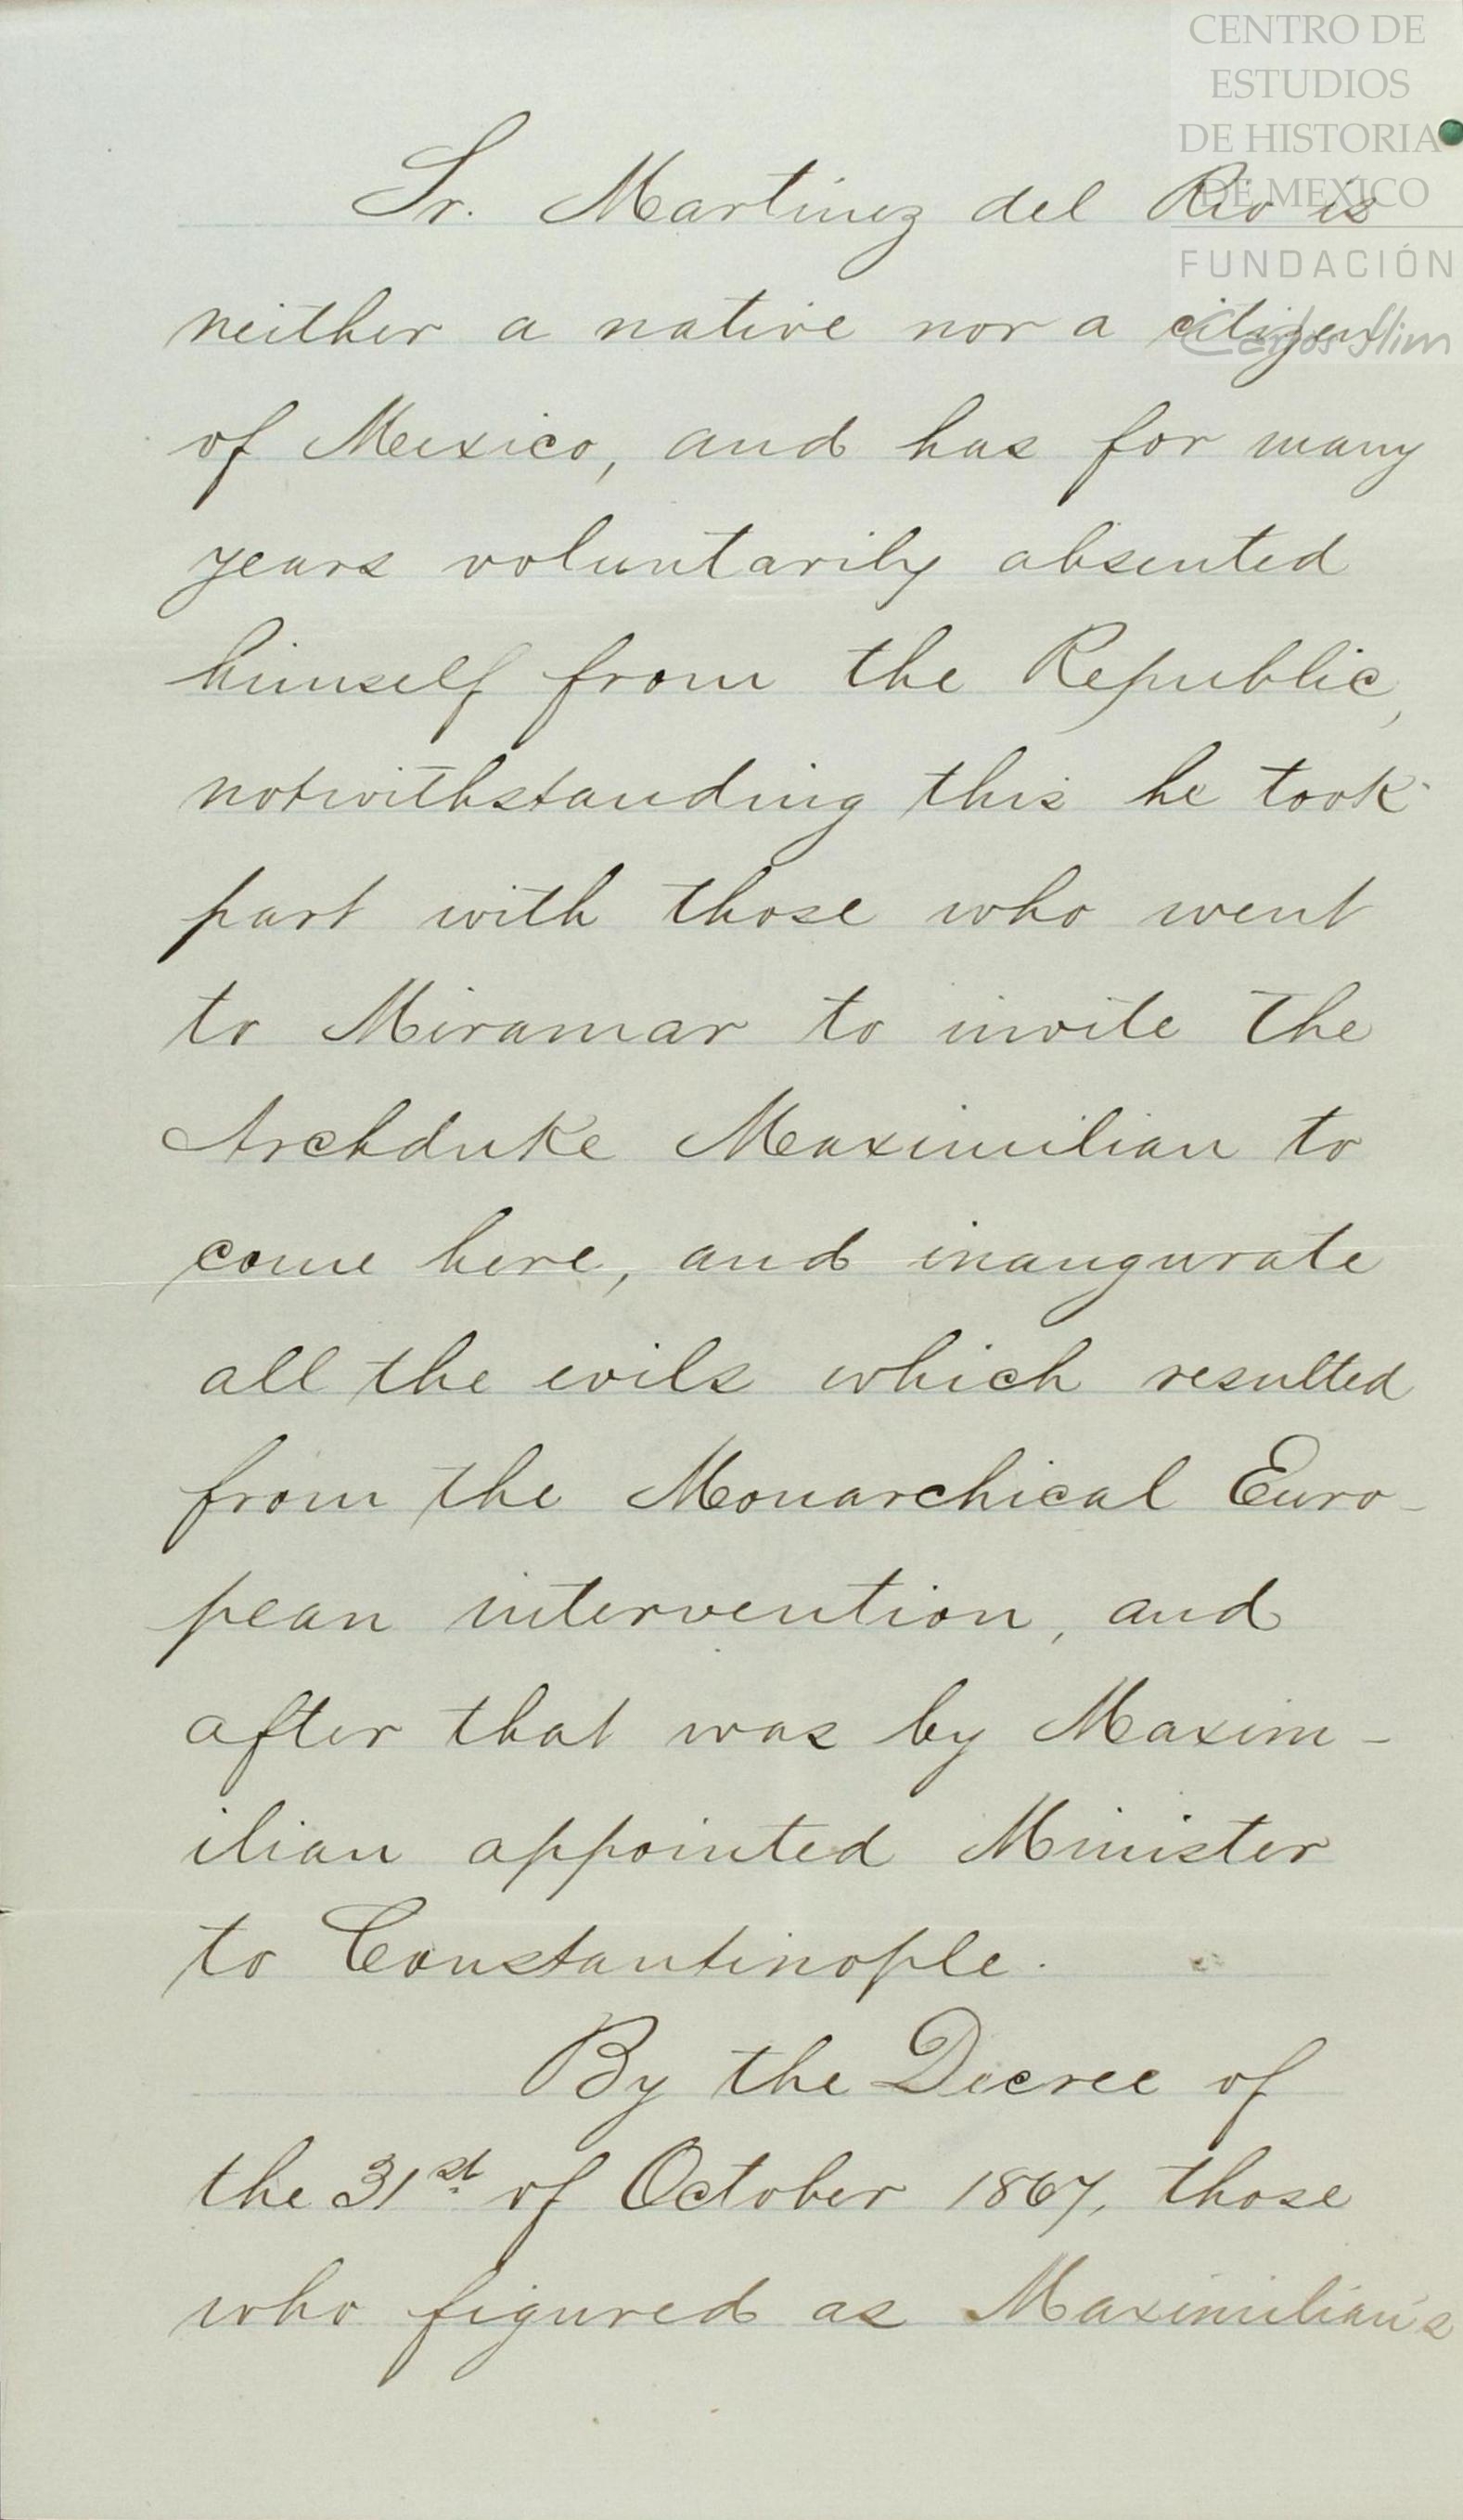 CENTRO DE
ESTUDIOS
DE HISTORIA
DE MEXICO
FUNDACIÓN
Carlos Slim
Sr. Martinez del Rio is
neither a native nor a citizen
of Mexico, and has for many
years voluntarily absented
himself from the Republic,
notwithstanding this he took
part with those who went
to Miramar to invite the
Archduke Maximilian to
come here, and inaugurate
all the evils which resulted
from the Monarchical Euro-
pean intervention, and
after that was by Maxim-
ilian appointed Minister
to Constantinople.
By the Decree of
the 31st. of October 1867, those
who figured as Maximilian's